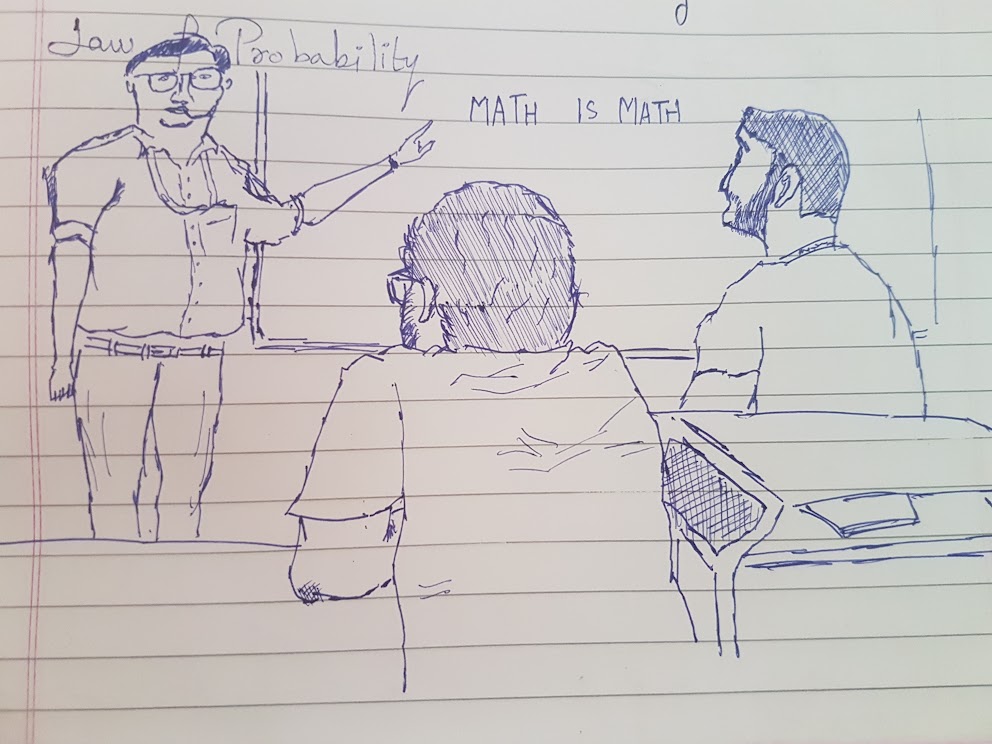 Law of Probability
MATH IS MATH